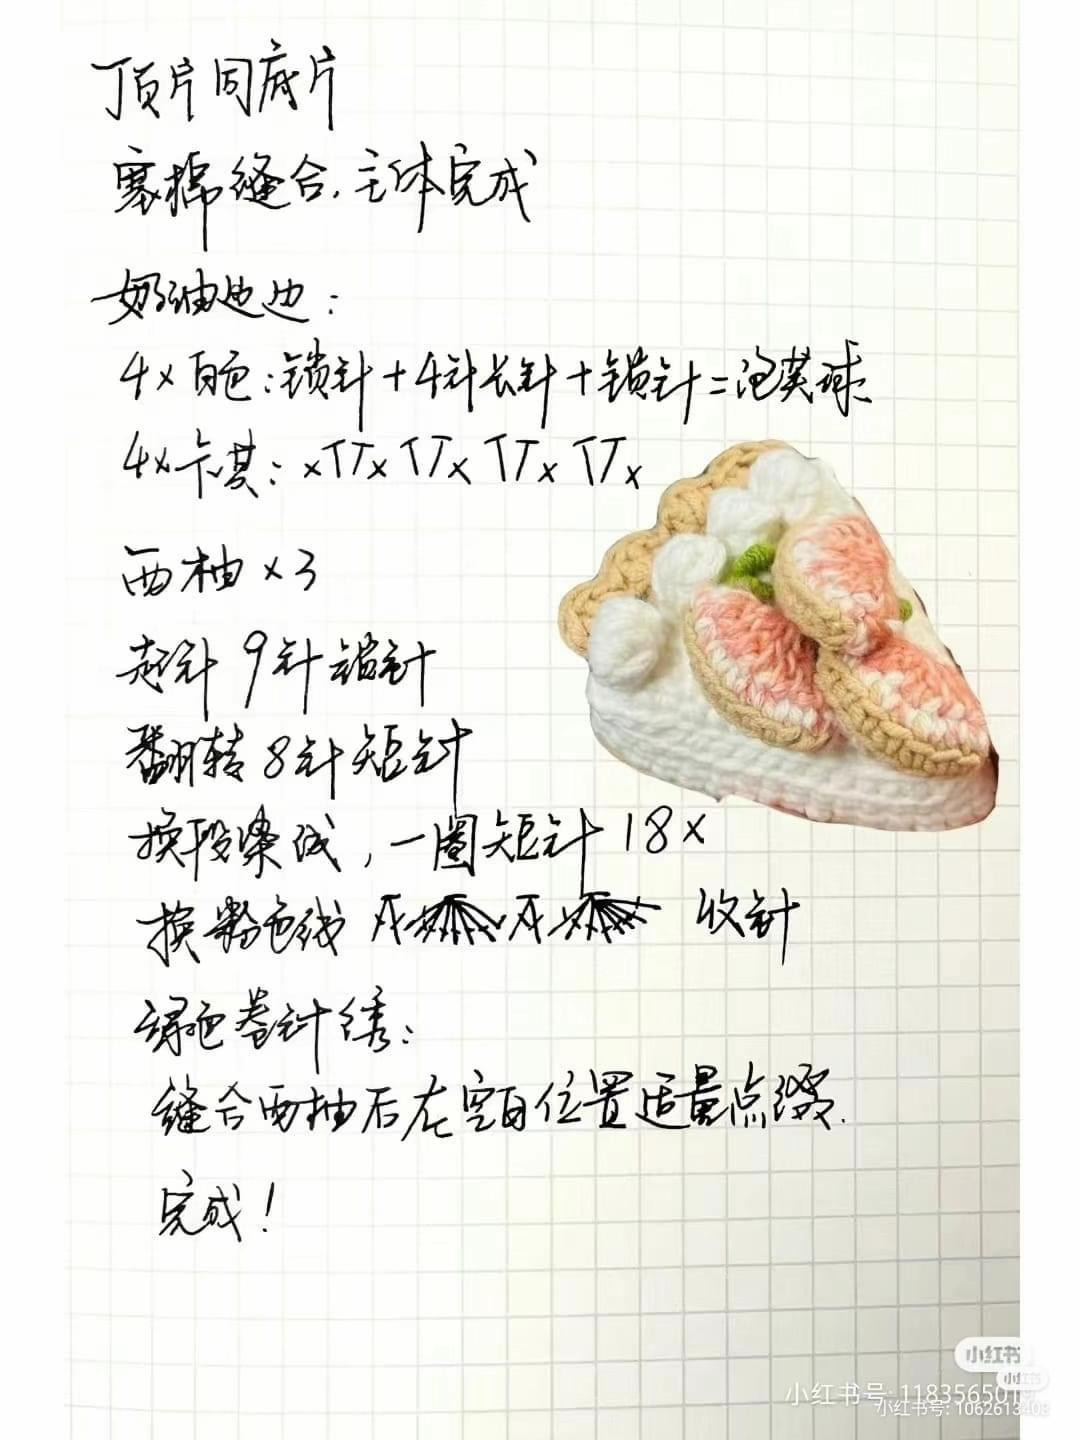 顶片同底片
塞棉缝合.主体完成
奶油边边:
4×白色:锁针+4针长针+锁针=泡芙球
4×卡其:×TT×TT×TT×TT×
西柚×3
起针9针锁针
翻转8针短针
换段染线,一圈短针18×
换粉色线 收针
绿色卷针绣:
缝合西柚后在空白位置适量点缀.
完成!
小红书
小红书
小红书号: 118356501
小红书号: 1062613403